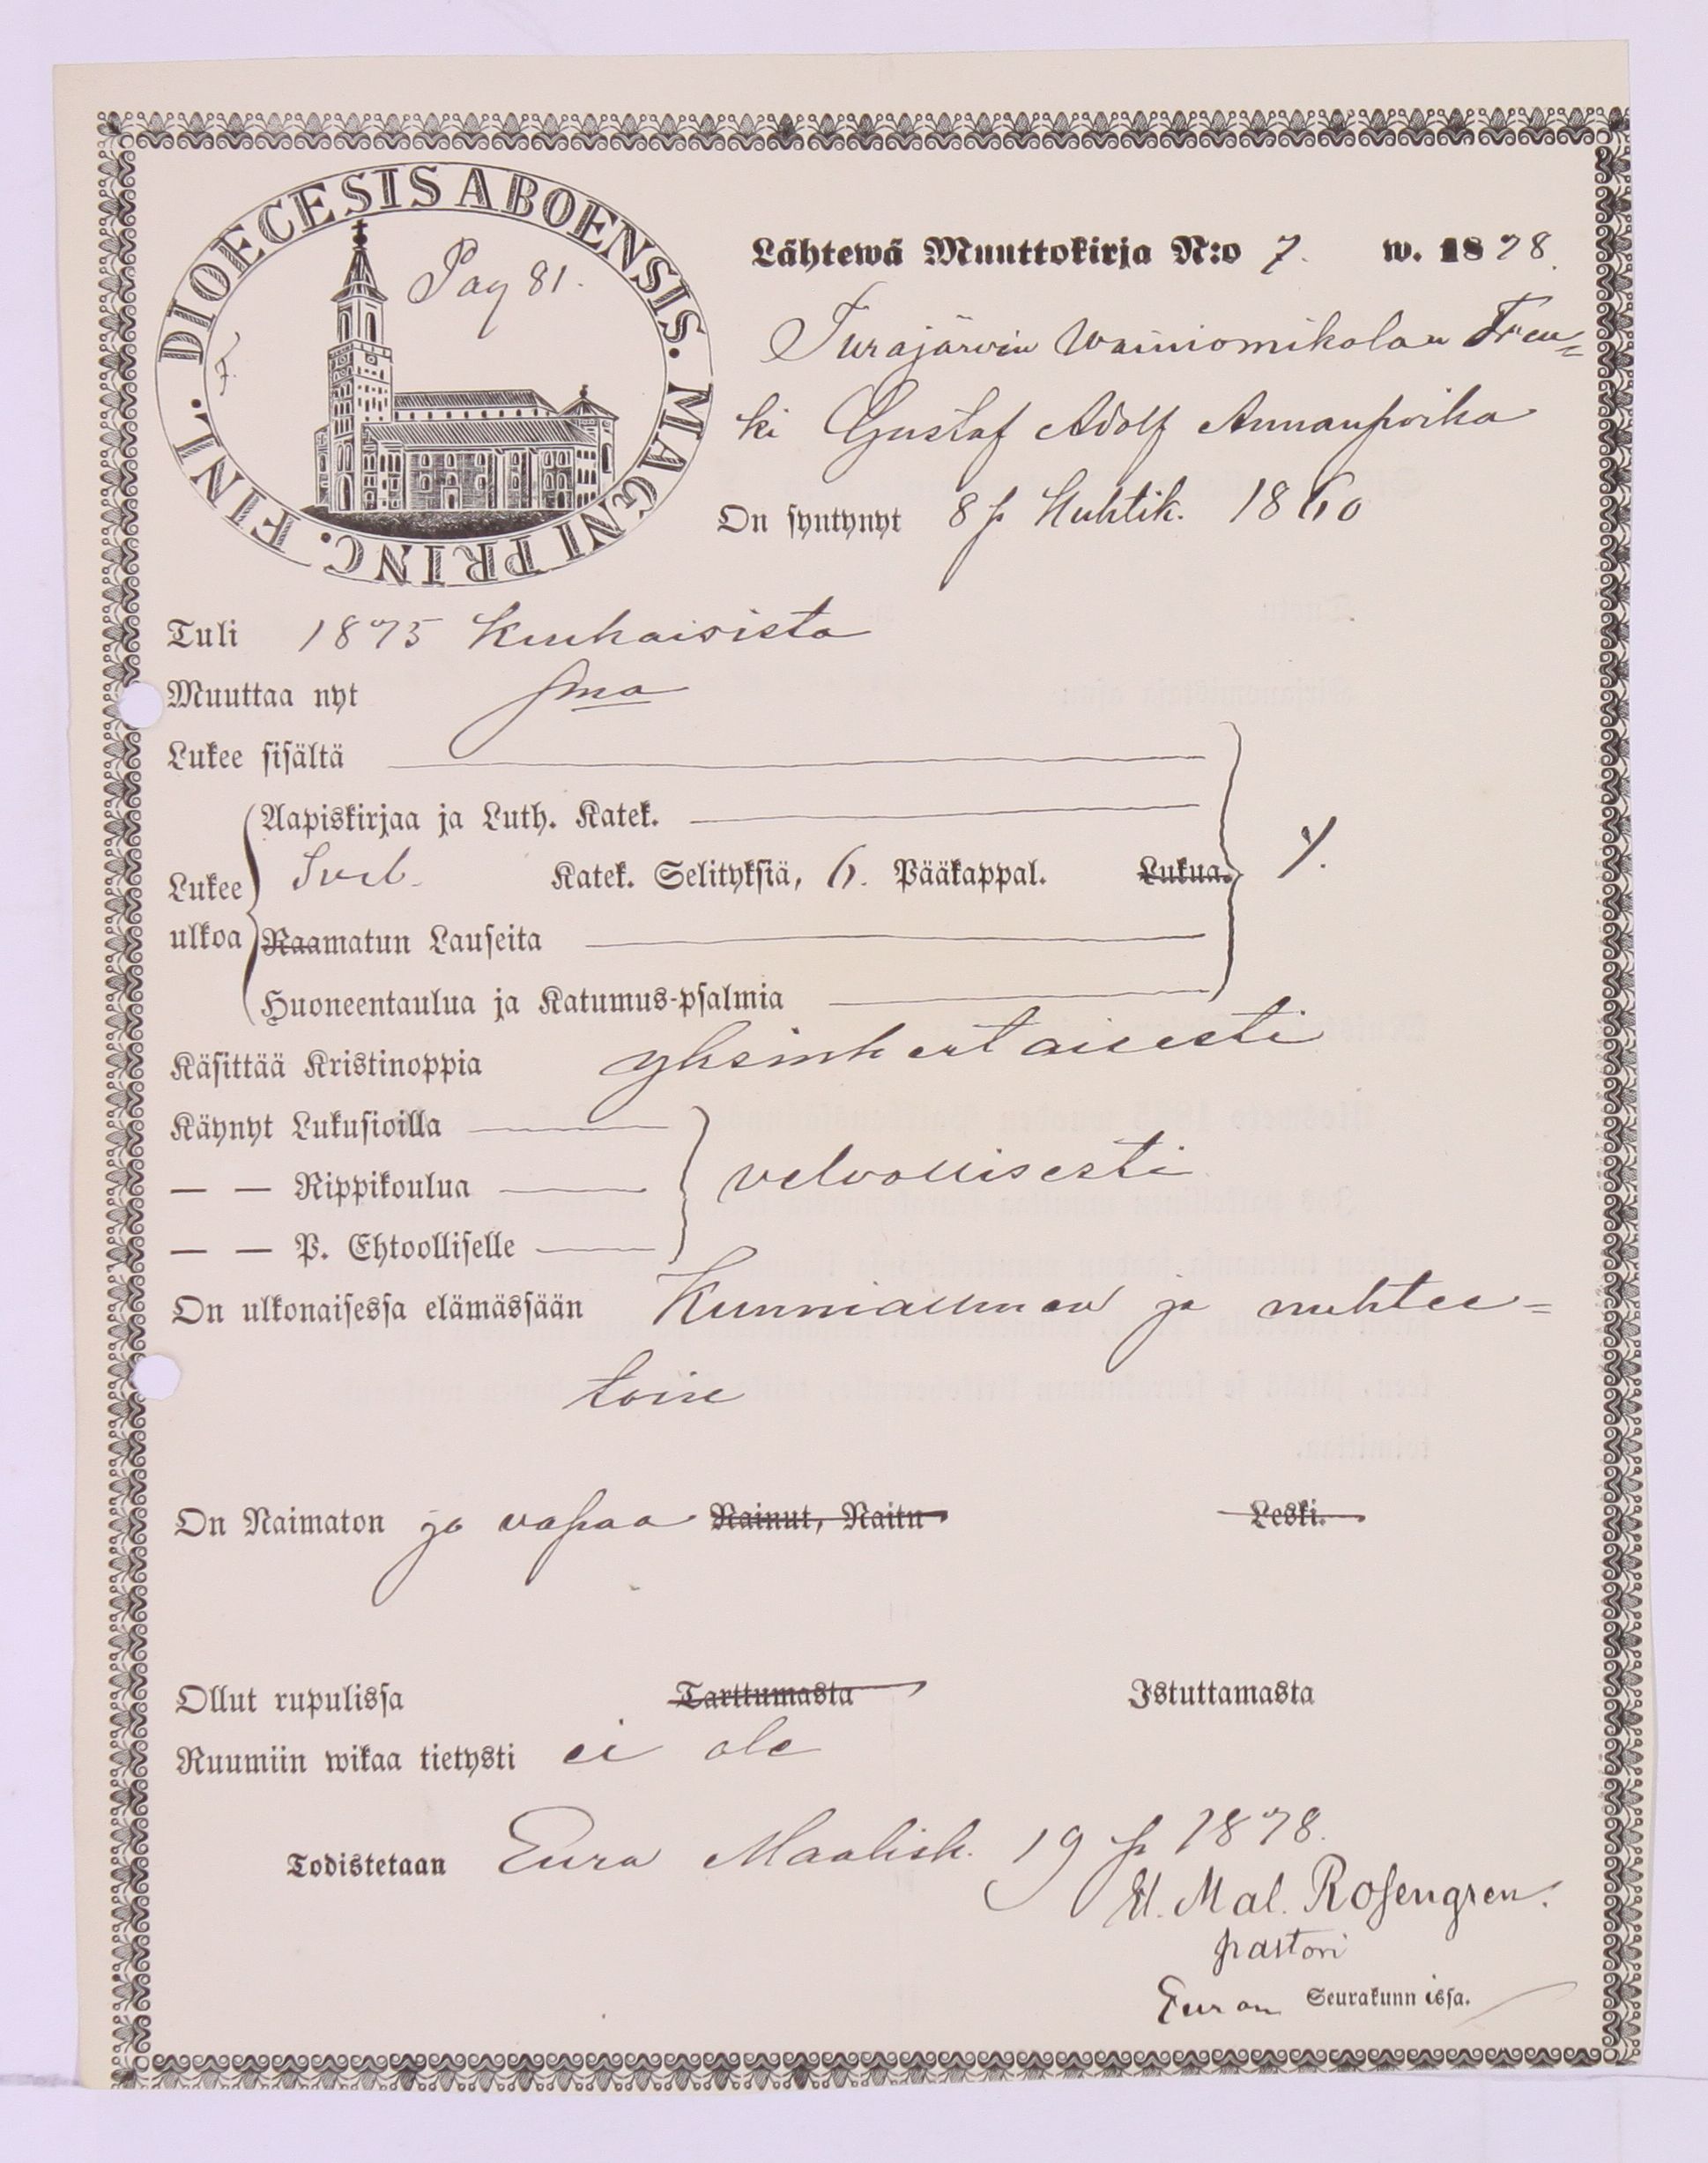 DIOECESIS ABOENSIS. MAGNI PRINC. FINL.
Pag 81.
F.
Lähtewä Muuttokirja N:o 7. w. 1878.
Turajärvin Wainiomikolan Tren=
ki Gustaf Adolf Annanpoika
On syntynyt 8 p. Huhtik. 1860
Tuli 1875 Kiukaisista
Muuttaa nyt sma
Lukee sisältä
Aapiskirjaa ja Luth. Katek.
Lukee ulkoa Sveb. Katek. Selityksiä, 6. Pääkappal. Lukua.
Raamatun Lauseita
Huoneentaulua ja Katumus-psalmia
Käsittää Kristinoppia yksinkertaisesti
Käynyt Lukusioilla
— — Rippikoulua velvollisesti
— — P. Ehtoolliselle
On ulkonaisessa elämässään Kunniallinen ja nuhtee=
toin
On Naimaton ja vapaa Nainut, Naitu Leski.
Ollut rupulissa Tarttumasta Istuttamasta
Ruumiin wikaa tietysti ei ole
Todistetaan Eura Maalisk. 19 p. 1878.
Mal. Rosengren.
pastori
Euran Seurakunnissa.